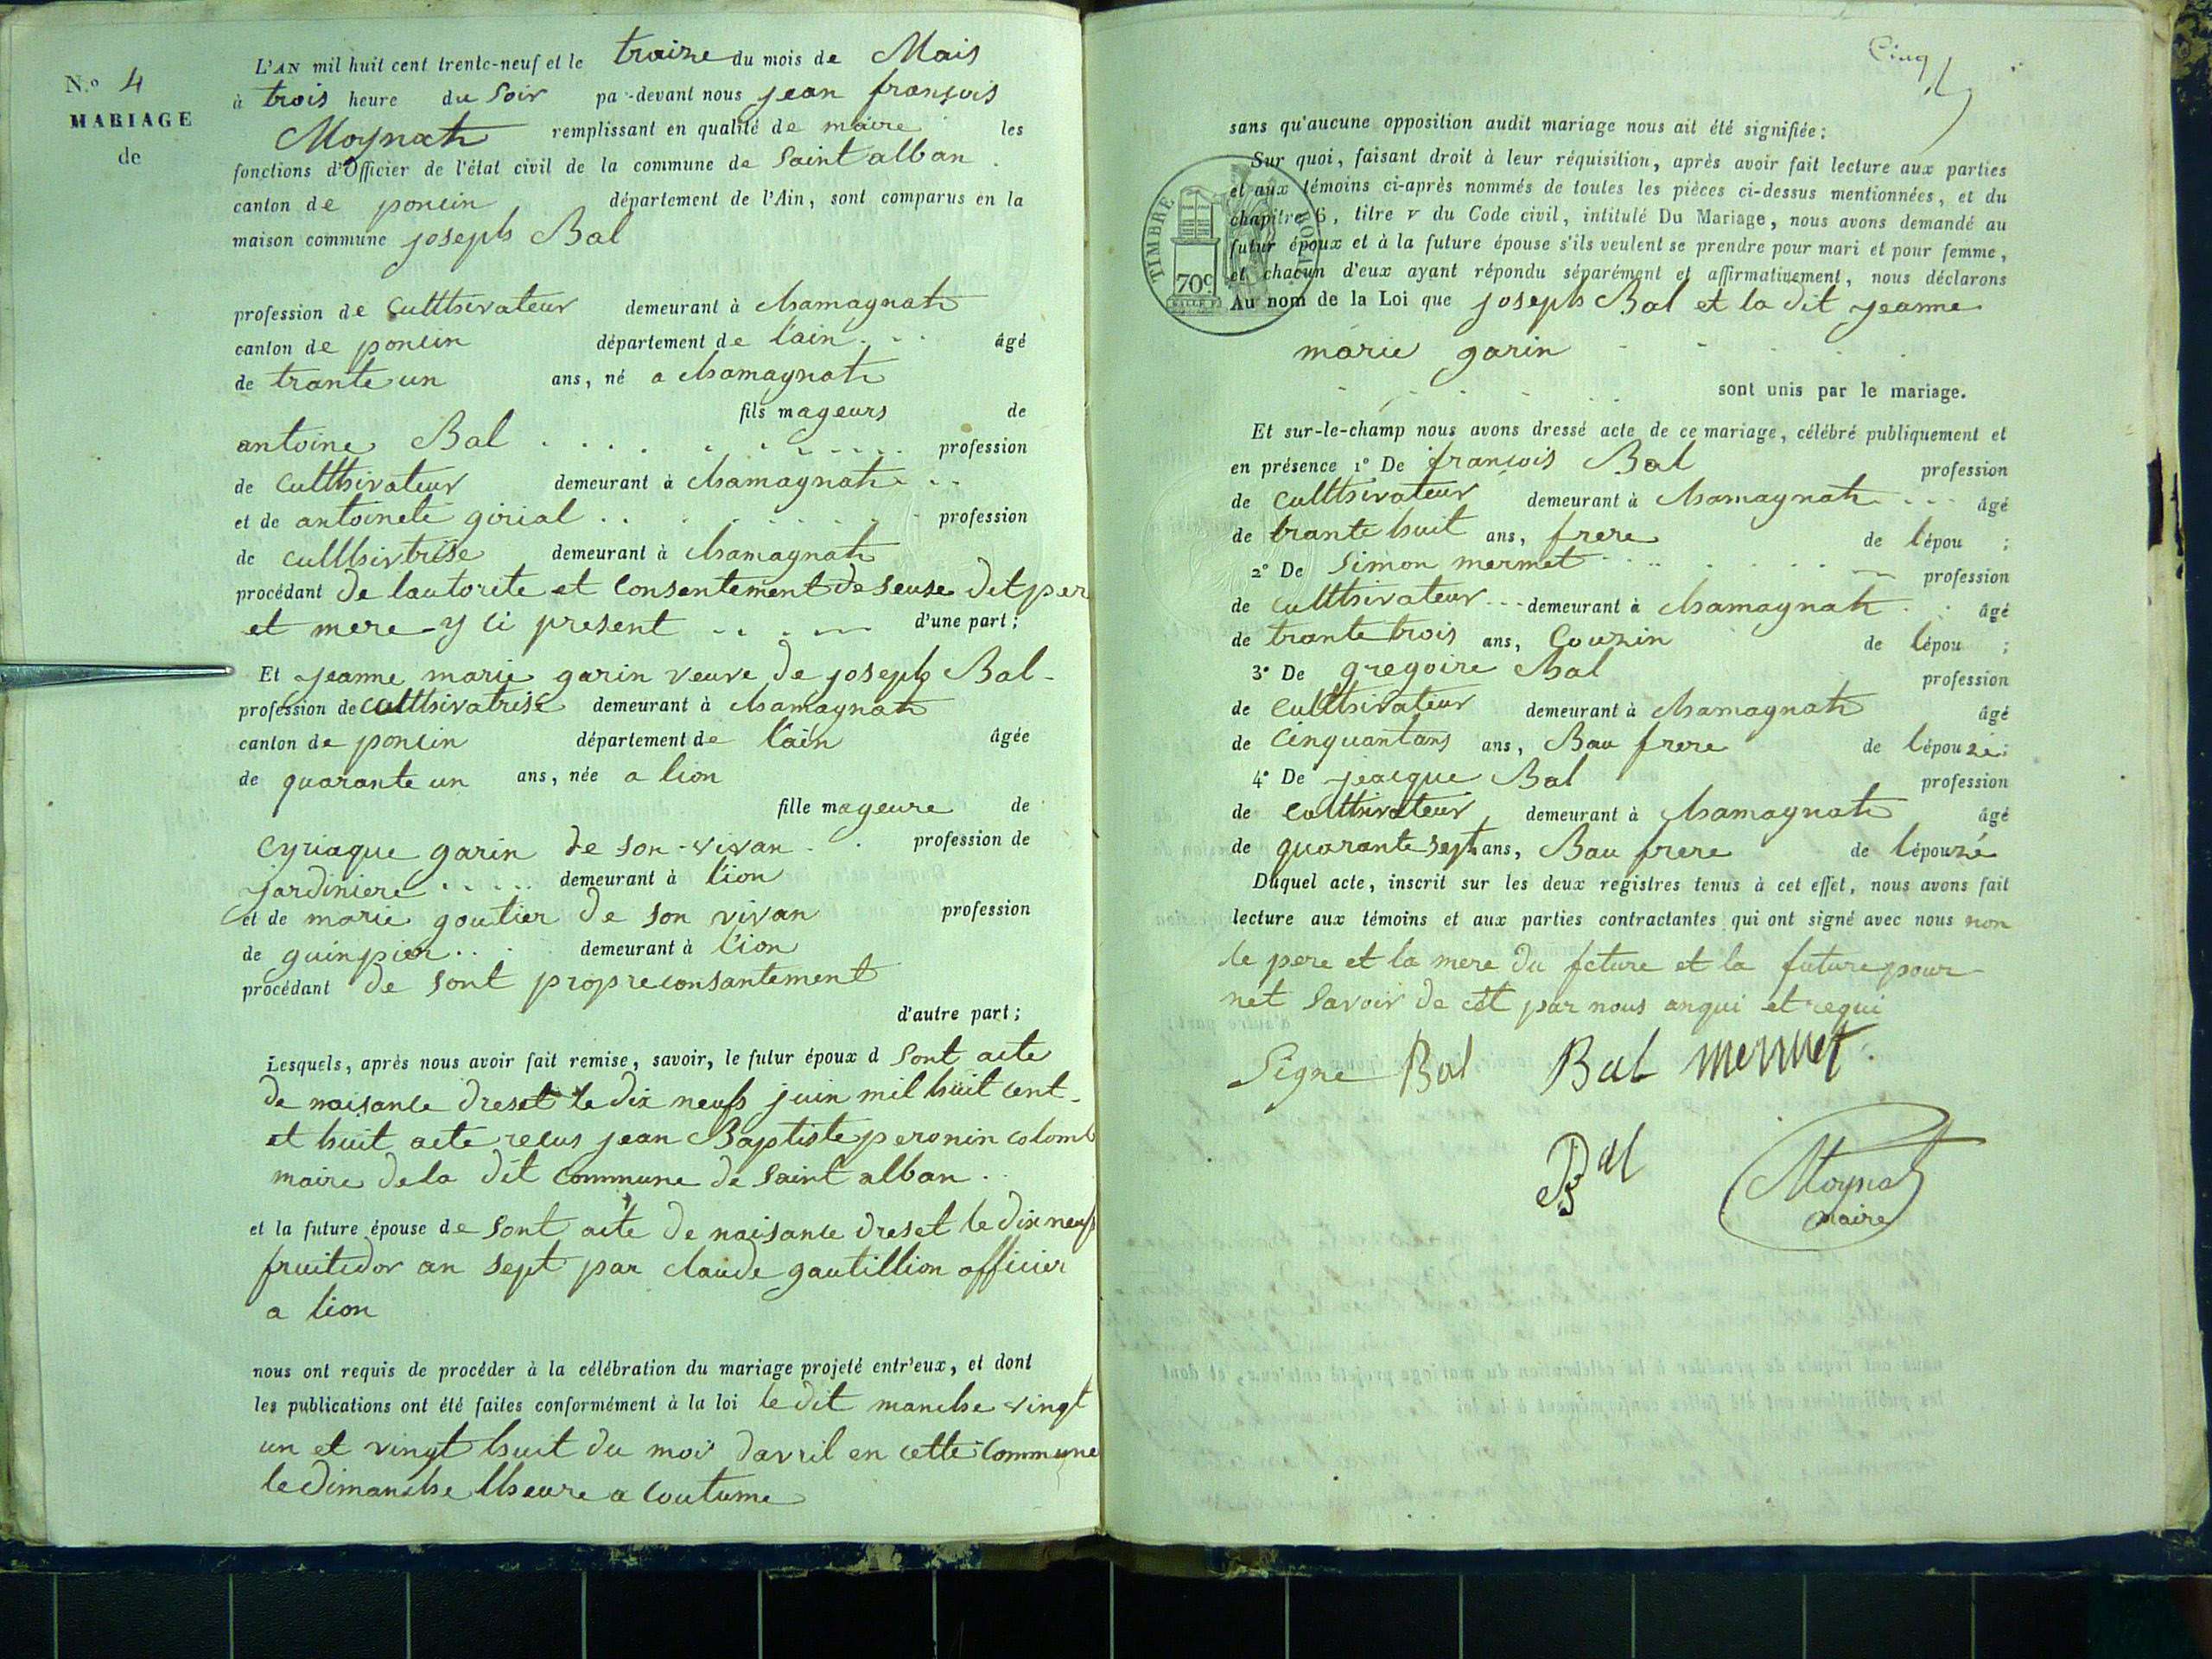 N.o 4
MARIAGE
de
L'AN mil huit cent trente-neuf et le traize du mois de Mais
à trois heure du Soir pa-devant nous jean françois
Moynat remplissant en qualité de maire les
fonctions d'Officier de l'état civil de la commune de Saint alban
canton de poncin département de l'Ain, sont comparus en la
maison commune joseph Bal
profession de Culthivateur demeurant à Chamagnat
canton de poncin département de l'ain âgé
de trante un ans, né a Chamagnat
fils mageurs de
antoine Bal profession
de Culthivateur demeurant à Chamagnat
et de antoinete girial profession
de Culthivtrise demeurant à Chamagnat
procédant de lautorite et Consentement de seuse dit per
et mere y ci present d'une part;
Et jeanne marie garin veuve de joseph Bal
profession de Culthivatrise demeurant à Chamagnat
canton de poncin département de l'ain âgée
de quarante un ans, née a lion
fille mageure de
Cyriaque garin de son vivan profession de
jardiniere demeurant à lion
et de marie goutier de son vivan profession
de guinpier demeurant à lion
procédant de sont propre consantement
d'autre part;
Lesquels, après nous avoir fait remise, savoir, le futur époux d Sont acte
de naisance dreset le dix neuf juin mil huit cent
et huit acte recus jean Baptiste peronin colomb
maire de la dit Commune de Saint alban
et la future épouse de Sont acte de naisance dreset le dix neuf
fruitidor an sept par claude gautillion officier
a lion
nous ont requis de procéder à la célébration du mariage projeté entr'eux, et dont
les publications ont été faites conformément à la loi le dit manche vingt
un et vingt huit du moi davril en cette Commune
le dimanche lheure a Coutume
Cinq
sans qu'aucune opposition audit mariage nous ait été signifiée:
Sur quoi, faisant droit à leur réquisition, après avoir fait lecture aux parties
et aux témoins ci-après nommés de toutes les pièces ci-dessus mentionnées, et du
chapitre 6, titre V du Code civil, intitulé Du Mariage, nous avons demandé au
futur époux et à la future épouse s'ils veulent se prendre pour mari et pour femme,
et chacun d'eux ayant répondu séparément et affirmativement, nous déclarons
Au nom de la Loi que joseph Bal et la dit jeanne
marie garin
sont unis par le mariage.
TIMBRE ROYAL
70c
Et sur-le-champ nous avons dressé acte de ce mariage, célébré publiquement et
en présence 1o De françois Bal profession
de Culthivateur demeurant à Chamagnat âgé
de trante huit ans, frere de l'épou ;
2o De Simon mermet profession
de Culthivateur demeurant à Chamagnat âgé
de trante trois ans, Couzin de l'épou ;
3o De gregoire Bal profession
de Culthivateur demeurant à Chamagnat âgé
de Cinquantans ans, Bau frere de l'épouzé;
4o De jeacque Bal profession
de Culthivateur demeurant à Chamagnat âgé
de quarante sept ans, Bau frere de l'épouzé
Duquel acte, inscrit sur les deux registres tenus à cet effet, nous avons fait
lecture aux témoins et aux parties contractantes qui ont signé avec nous non
le pere et la mere du feture et la future pour
net Savoir de cet par nous anqui et requi
Signe Bal Bal mermet
Bal Moynat
maire